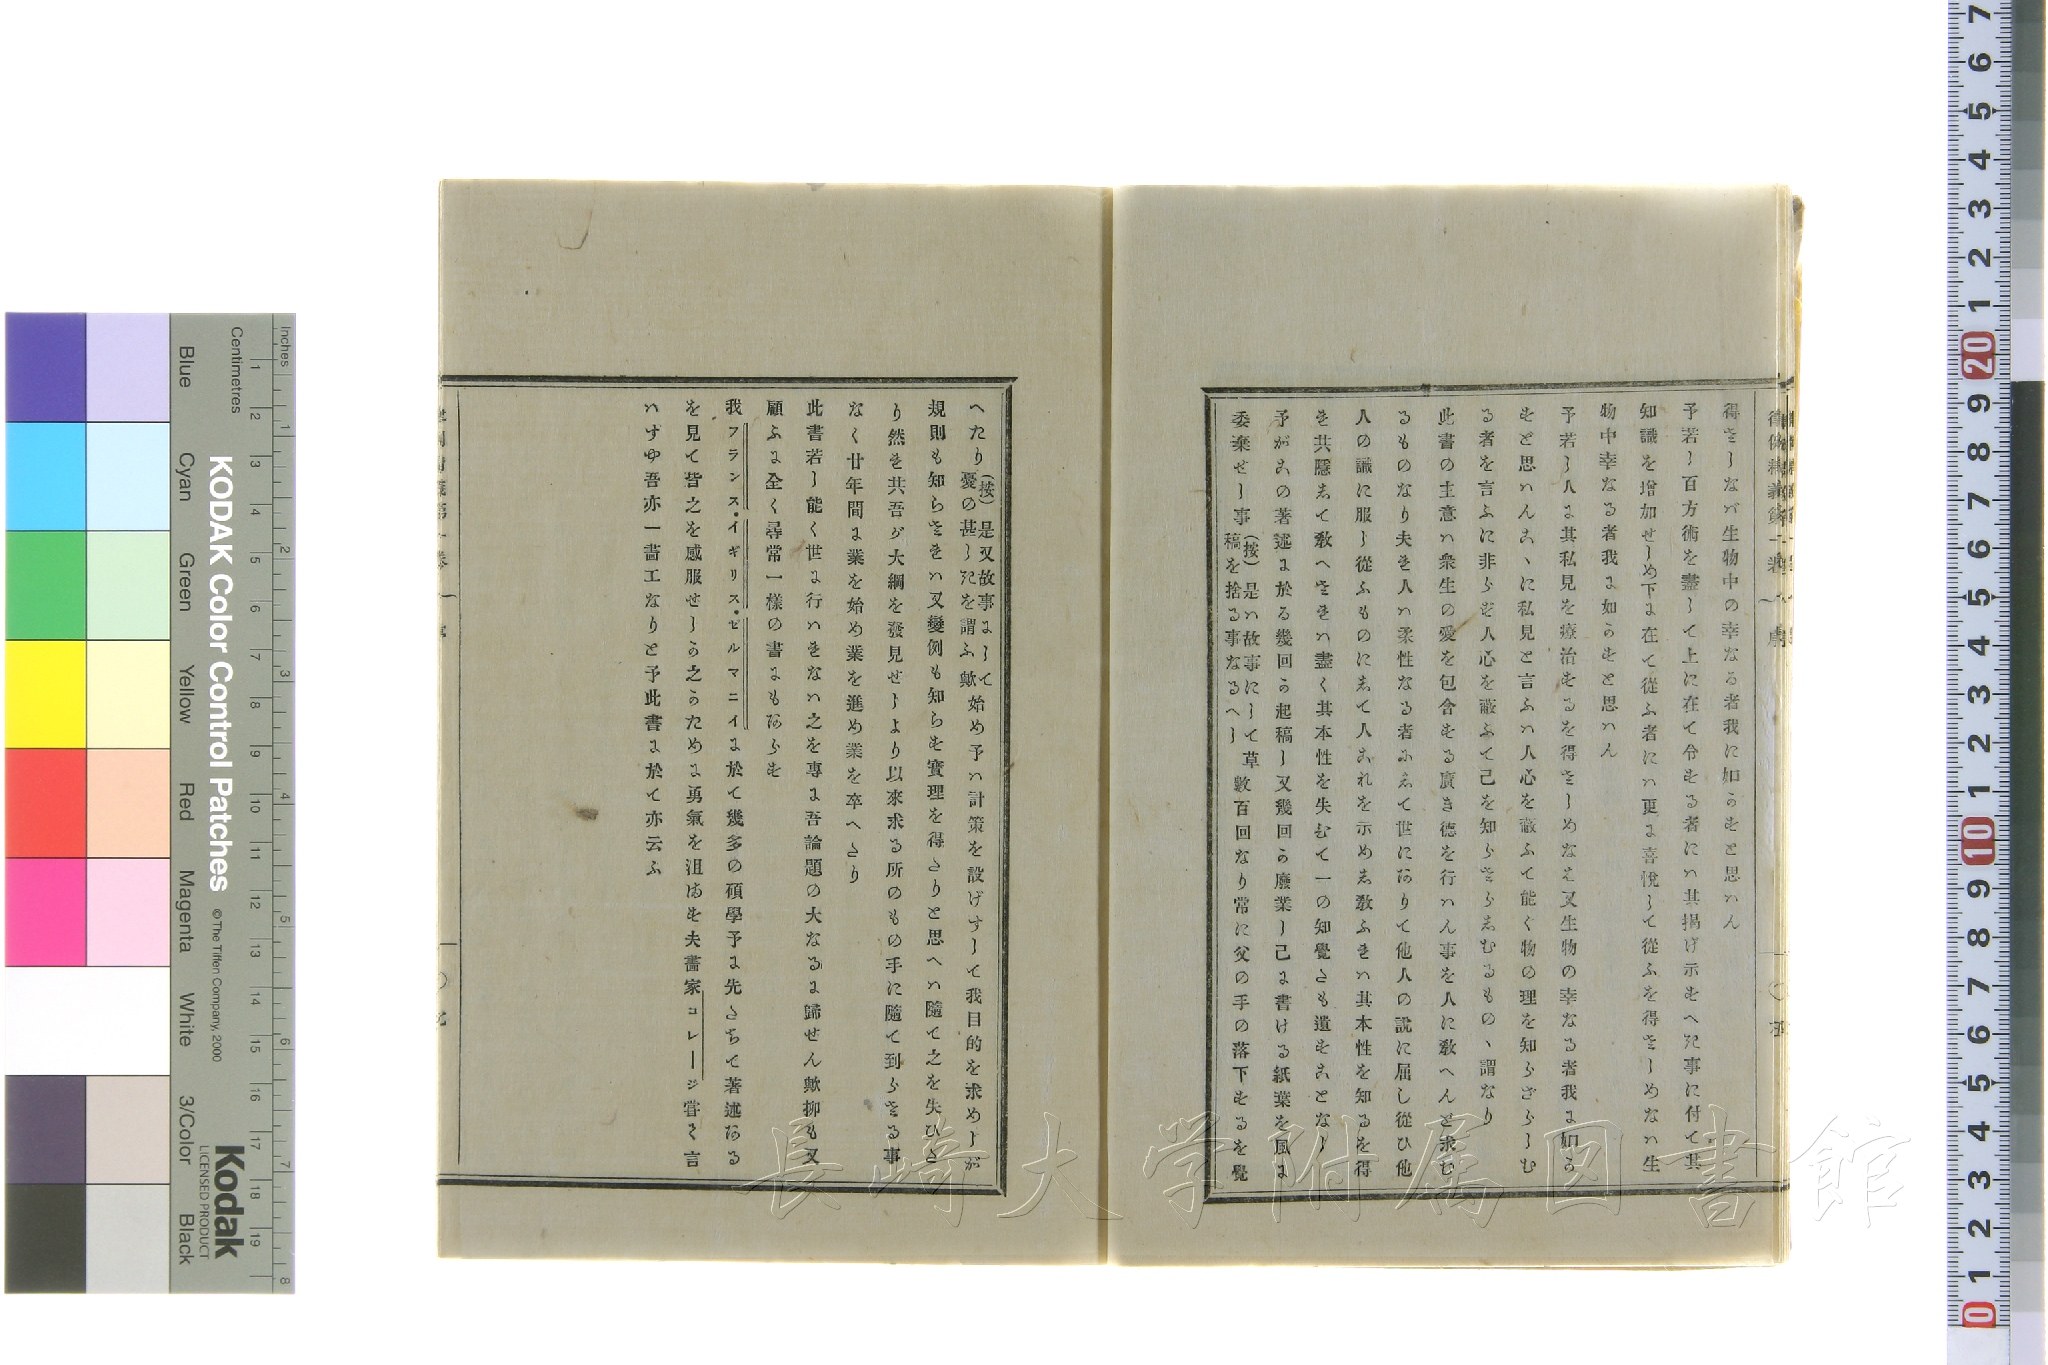 得さしなバ生物中の幸なる者我に如かすと思ハん
予若し百方術を盡して上に在て令する者にハ其掲げ示すへき事に付て其
知識を増加せしめ下ま在て從ふ者にハ更ま喜悅して從ふを得さしめなハ生
物中幸なる者我ま如かすと思ハん
予若し人ま其私見を療治するを得さしめなは又生物の幸なる者我ま如か
すと思ハんこゝに私見と言ふハ人心を蔽ふて能く物の理を知らざらしむ
る者を言ふに非らず人心を蔽ふて己を知らさらしむるものゝ謂なり
此書の主意ハ衆生の愛を包含する廣き德を行ハん事を人に敎へんと求む
るものなり夫を人ハ柔性なる者ふして世にありて他人の說に屈し從ひ他
人の識に服し從ふものにして人これを示めし敎ふれハ其本性を知るを得
を共隱して敎へされハ盡く其本性を失むて一の知覺さも遺すことなし
予がこの著述ま於る幾回か起稿し又幾回か廢業し己ま書ける紙葉を風ま
委棄せし事（按）是ハ故事にして草稿を捨る事なるへし數百回なり常に父の手の落下するを覺
へたり（按）是又故事まして憂の甚しきを謂ふ歟始め予ハ計策を設げずして我目的を求めしが
規則も知らされハ又變例も知らす實理を得さりと思へハ隨て之を失ひさ
り然を共吾ガ大綱を發見せしより以來求る所のもの手に隨て到らさる事
なく廿年間ま業を始め業を進め業を卒へさり
此書若し能く世ま行ハれなハ之を專ま吾論題の大なるま歸せん歟抑も又
顧ふま全く尋常一樣の書まもあらす
我フランス・イギリス・ゼルマニイま於て幾多の碩學予ま先さちて著述ある
を見て皆之を感服せしか之かためま勇氣を沮ます夫畵家コレージ嘗て言
ハずや吾亦一畵工なりと予此書ま於て亦云ふ
長崎大学附属図書館
KODAK Color Control Patches
© The Tiffen Company, 2000
Kodak
LICENSED PRODUCT
Inches
Centimetres
Blue
Cyan
Green
Yellow
Red
Magenta
White
3/Color
Black